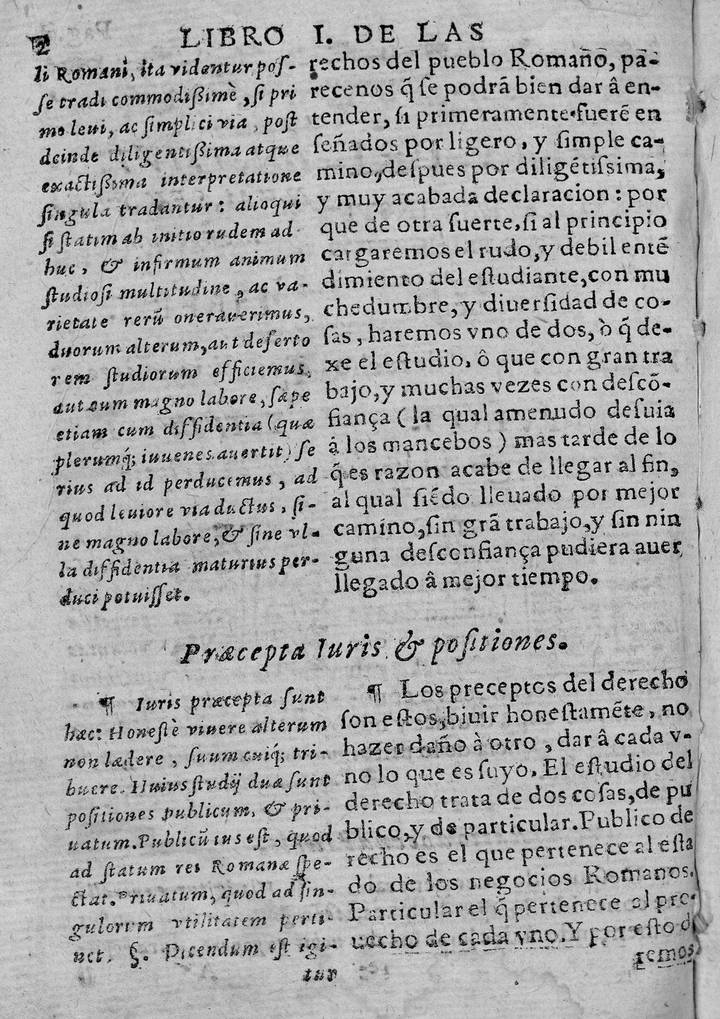 2 LIBRO I. DE LAS
li Romani, ita videntur pos-
se tradi commodißimè, si pri
mo leui, ac simplici via, post
deinde diligentißima atque
exactißima interpretatione
singula tradantur: alioqui
si statim ab initio rudem ad
huc, & infirmum animum
studiosi multitudine, ac va-
rietate rerū onerauerimus,
duorum alterum, aut deserto
rem studiorum efficiemus,
aut cum magno labore, sæpe
etiam cum diffidentia (quæ
plerumq; iuuenes auertit) se
rius ad id perducemus, ad
quod leuiore via ductus, si-
ne magno labore, & sine vl-
la diffidentia maturius per-
duci potuisset.
rechos del pueblo Romano, pa-
recenos q̃ se podrā bien dar â en-
tender, si primeramente fuerē en
señados por ligero, y simple ca-
mino, despues por diligētissima,
y muy acabada declaracion: por
que de otra suerte, si al principio
cargaremos el rudo, y debil entē
dimiento del estudiante, con mu
chedumbre, y diuersidad de co-
sas, haremos vno de dos, ò q̃ de-
xe el estudio, ô que con gran tra
bajo, y muchas vezes con descō-
fiança (la qual amenudo desuia
â los mancebos) mas tarde de lo
q̃ es razon acabe de llegar al fin,
al qual siēdo lleuado por mejor
camino, sin grā trabajo, y sin nin
guna desconfiança pudiera auer
llegado â mejor tiempo.
Præcepta Iuris & positiones.
¶ Iuris præcepta sunt
hæc: Honestè viuere alterum
non lædere, suum cuiq; tri-
buere. Huius studij duæ sunt
positiones publicum, & pri-
uatum. Publicū ius est, quod
ad statum rei Romanæ spe-
ctat. Priuatum, quod ad sin-
gulorum vtilitatem perti-
net. §. Dicendum est igi-
tur
¶ Los preceptos del derecho
son estos, biuir honestamēte, no
hazer daño à otro, dar â cada v-
no lo que es suyo. El estudio del
derecho trata de dos cosas, de pu
blico, y de particular. Publico de
recho es el que pertenece al esta
do de los negocios Romanos.
Particular el q̃ pertenece al pro-
uecho de cada vno. Y por esto d
remos